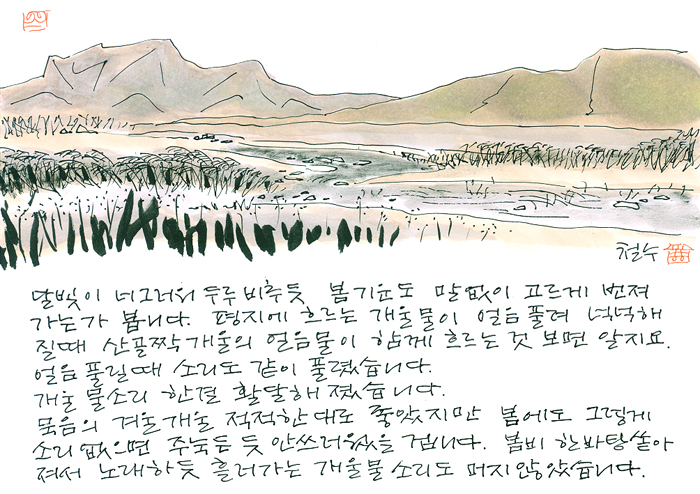 철수
달빛이 너그러워 두루 비추듯 봄기운도 말없이 고르게 번져
가는가 봅니다. 평지에 흐르는 개울물이 얼음풀려 넉넉해
질때 산골짝개울의 얼음물이 함께 흐르는 것 보면 알지요.
얼음 풀릴때 소리도 같이 풀렸습니다.
개울 물소리 한결 활달해졌습니다.
묵음의 겨울개울 적적한대로 좋았지만 봄에도 그렇게
소리없으면 주눅든 듯 안쓰러웠을 겁니다. 봄비 한바탕 쏟아
져서 노래하듯 흘러가는 개울물 소리도 머지 않았습니다.